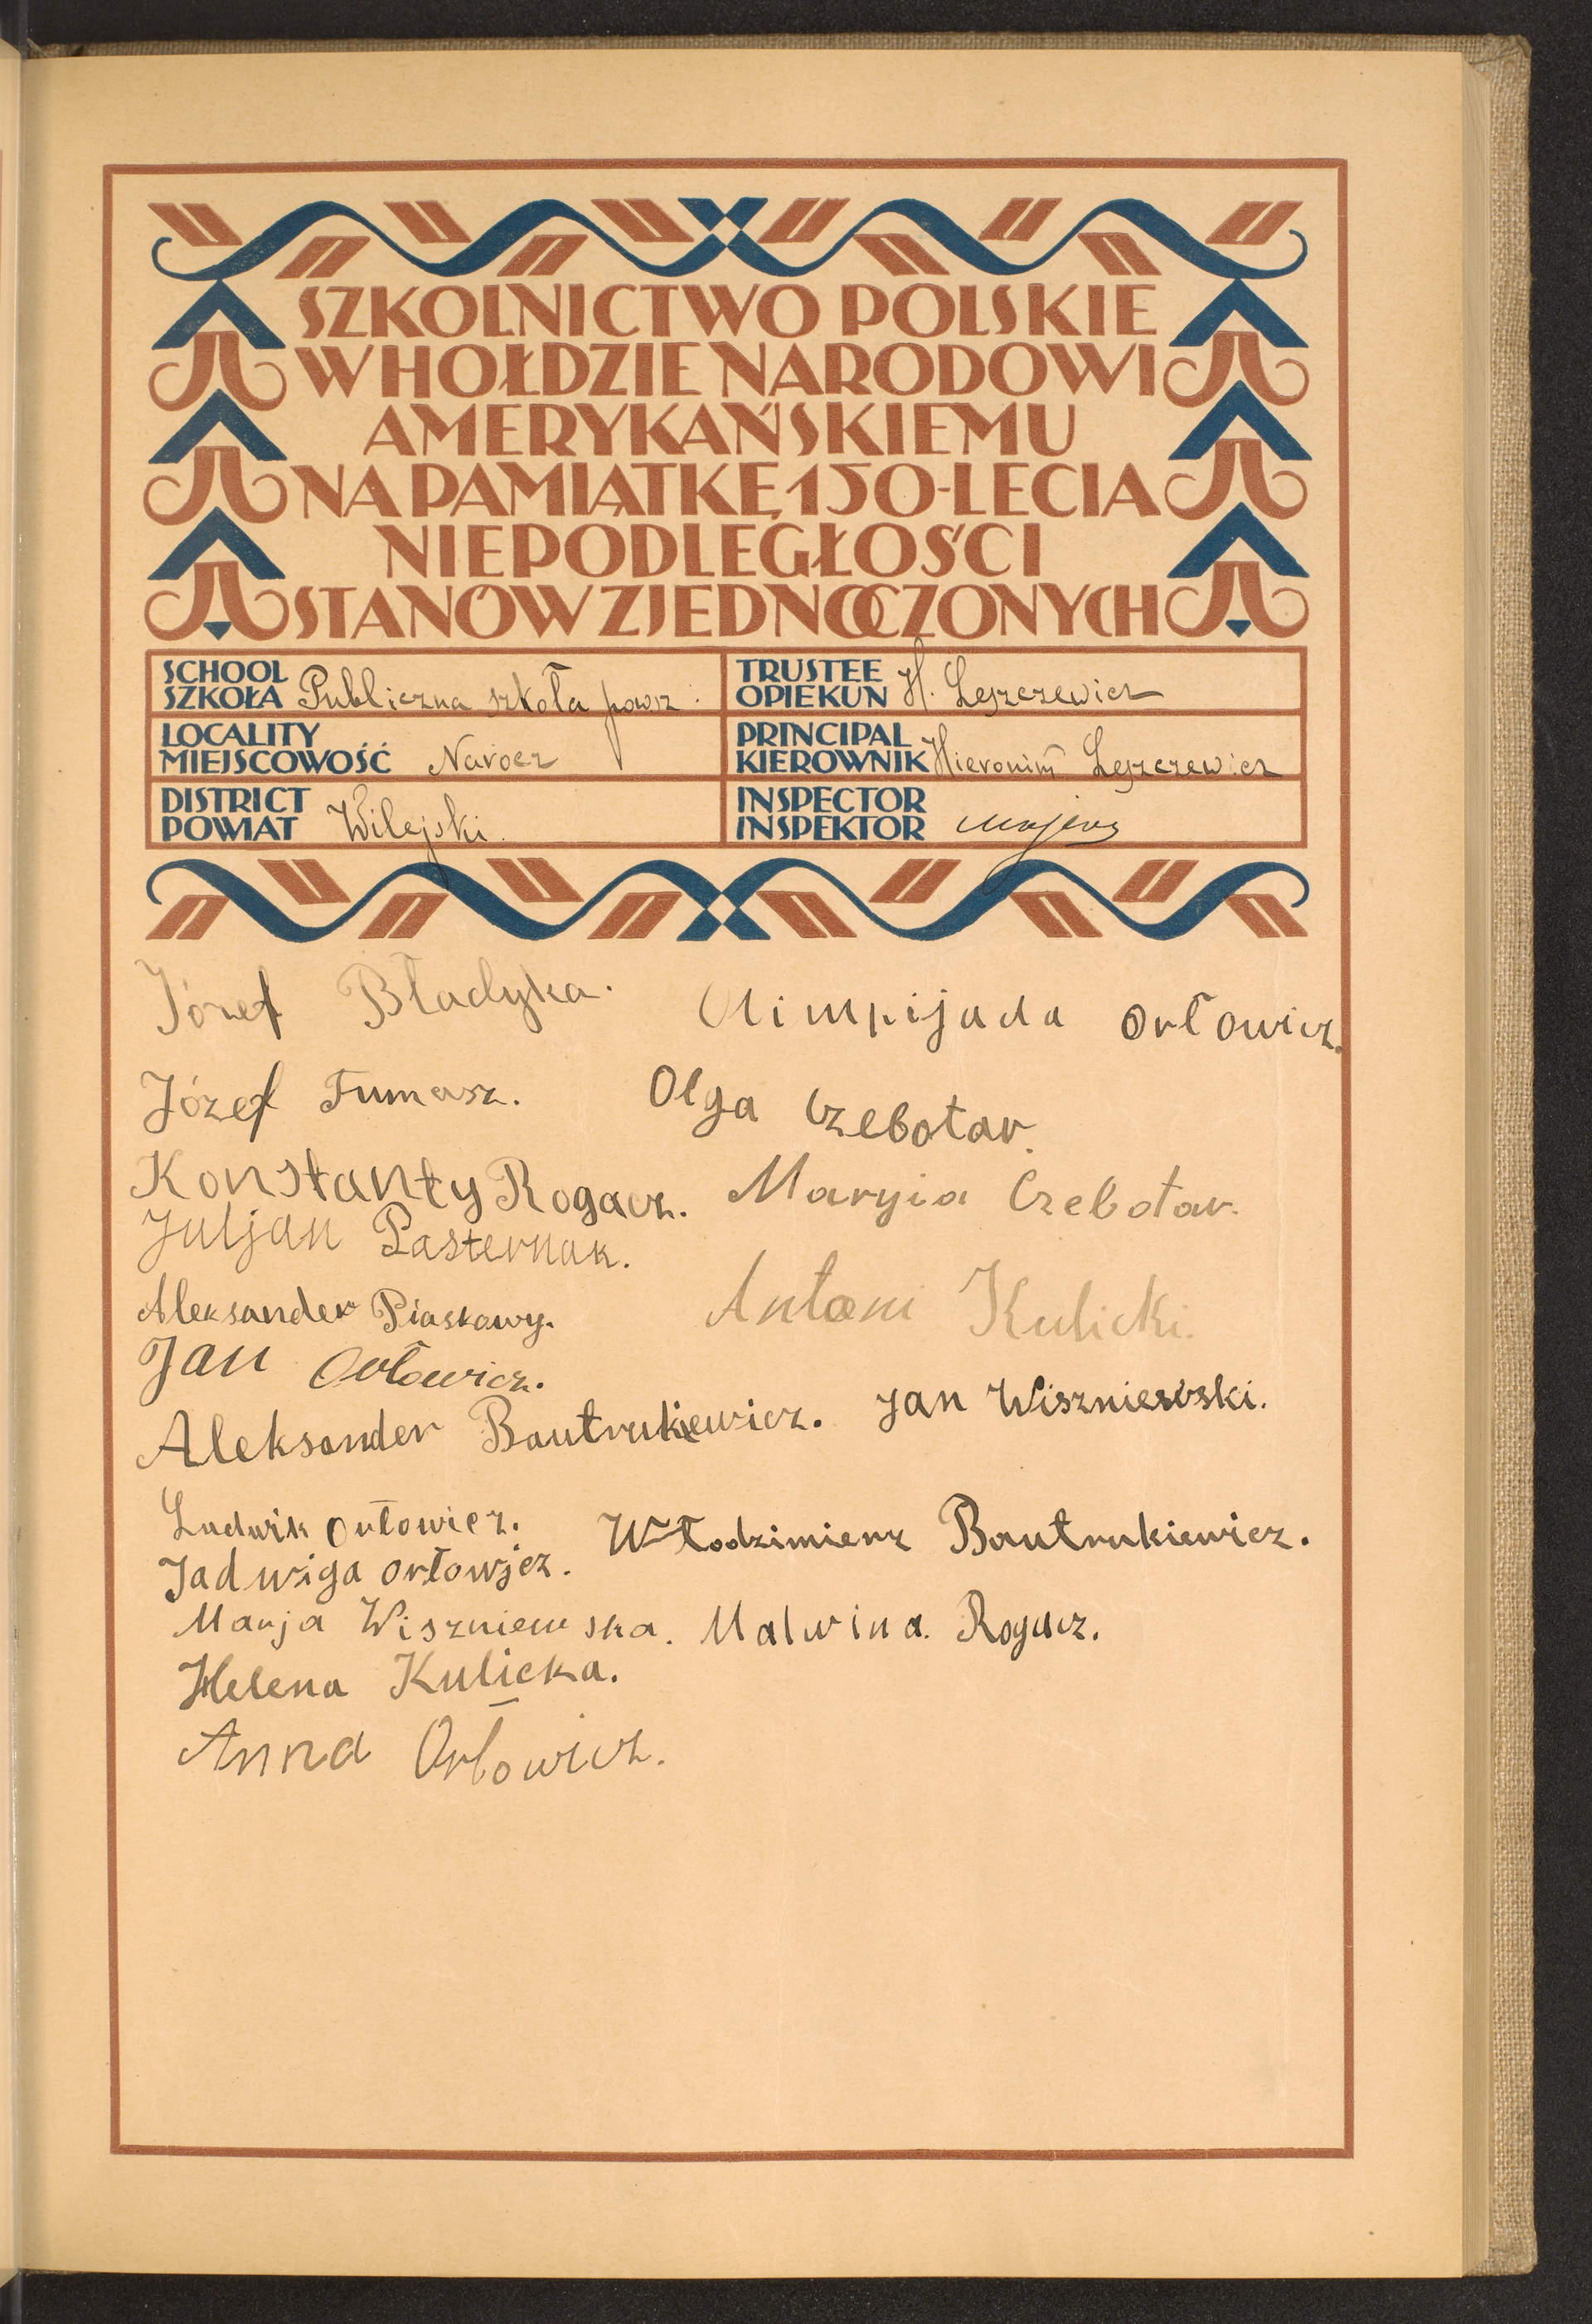 SZKOLNICTWO POLSKIE
W HOŁDZIE NARODOWI
AMERYKAŃSKIEMU
NA PAMIĄTKĘ 150-LECIA
NIEPODLEGŁOŚCI
STANÓW ZJEDNOCZONYCH
SCHOOL
SZKOŁA Publiczna szkoła powsz.
TRUSTEE
OPIEKUN H. Leszczewicz
LOCALITY
MIEJSCOWOŚĆ Narocz
PRINCIPAL
KIEROWNIK Hieronim Leszczewicz
DISTRICT
POWIAT Wilejski.
INSPECTOR
INSPEKTOR
Józef Bładyka. Olimpijada Orłowicz.
Józef Tumasz. Olga Czebotar.
Konstanty Rogacz. Maryia Czebotar.
Juljan Pasternak.
Aleksander Piaskawy. Antoni Kulicki.
Jan Orłowicz.
Aleksander Bautrukiewicz. Jan Wiszniewski.
Ludwik Orłowicz. Włodzimierz Bautrukiewicz.
Jadwiga Orłowjcz.
Marja Wiszniewska. Malwina Rogacz.
Helena Kulicka.
Anna Orłowicz.